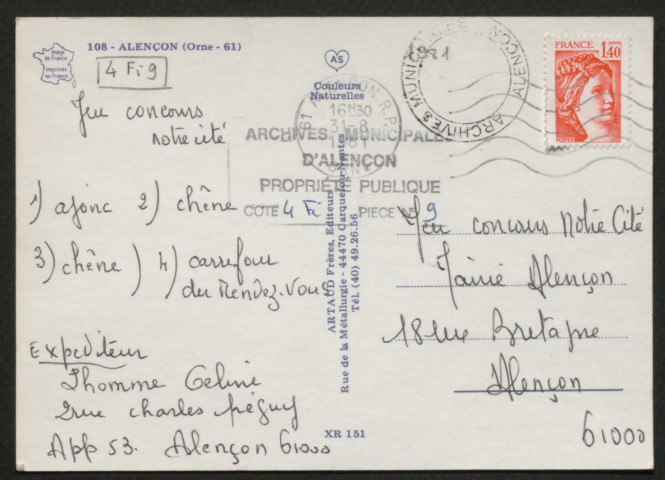 108 - ALENÇON (Orne - 61)
Image de France
Imprimée en France
4 Fi 9
Jeu concours
notre cité
1) ajonc 2) chêne
3) chêne ) 4) carrefour
du Rendez-Vous
Expediteur
Lhomme Celine
2 rue charles péguy
App 53. Alençon 61000
AS
Couleurs
Naturelles
ARTAUD Frères, Editeurs
Rue de la Métallurgie - 44470 Carquefou-Nantes
Tél. (40) 49.26.56
XR 151
61 ALENÇON R.P.
16H30
31-8
1981
ORNE
ARCHIVES MUNICIPALES
D'ALENÇON
PROPRIÉTÉ PUBLIQUE
COTE 4 Fi PIECE N° 9
1981
ARCHIVES MUNICIPALES ALENÇON
FRANCE
1,40
Jeu concours Notre Cité
Mairie Alençon
18 rue Bretagne
Alençon
61000